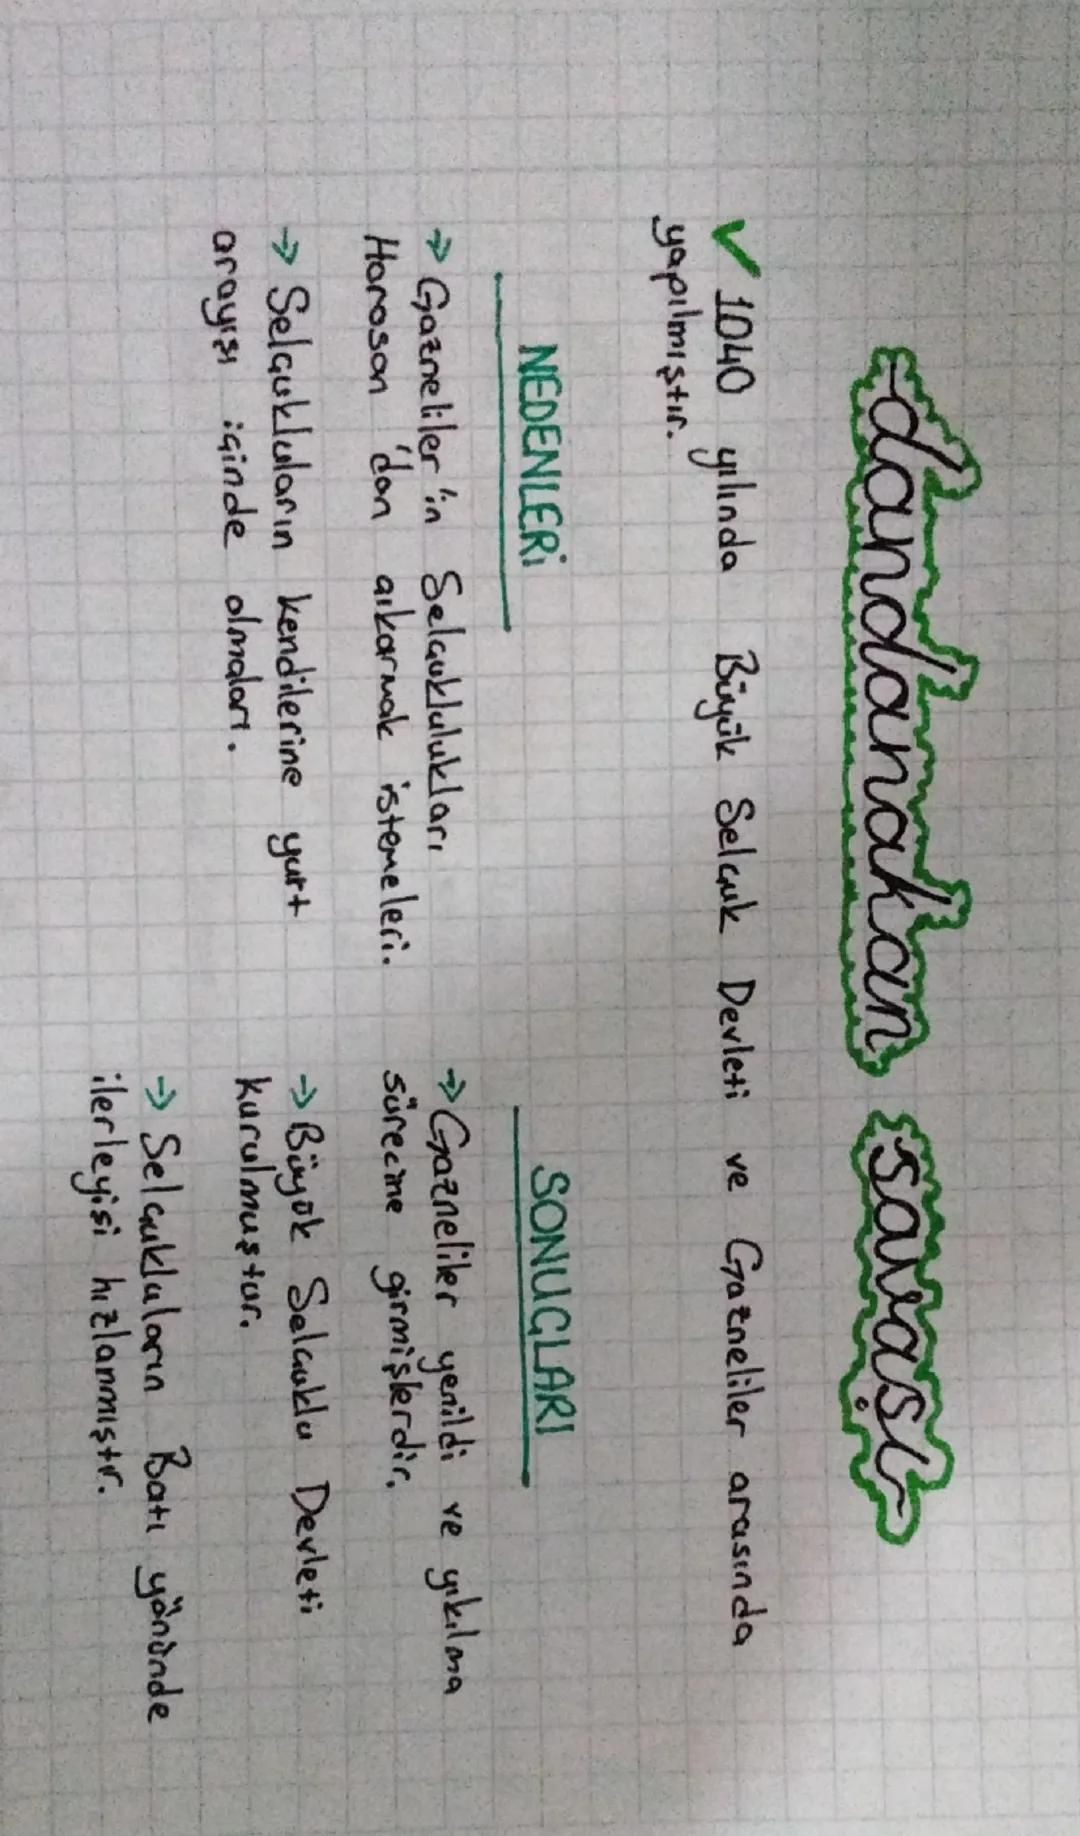 dandanakan savaşı
✓ 1040 yılında Büyük Selçuk Devleti ve Gazneliler arasında
yapılmıştır.
NEDENLERİ
→ Gazneliler'in Selçuklulukları
Horosan'dan çıkarmak istemeleri.
→ Selçukluların kendilerine yurt
arayışı içinde olmaları.
SONUÇLARI
→ Gazneliler yenildi ve yıkılma
sürecine girmişlerdir.
→ Büyük Selçuklu Devleti
kurulmuştur.
→ Selçukluların Batı yönünde
ilerleyişi hızlanmıştır.